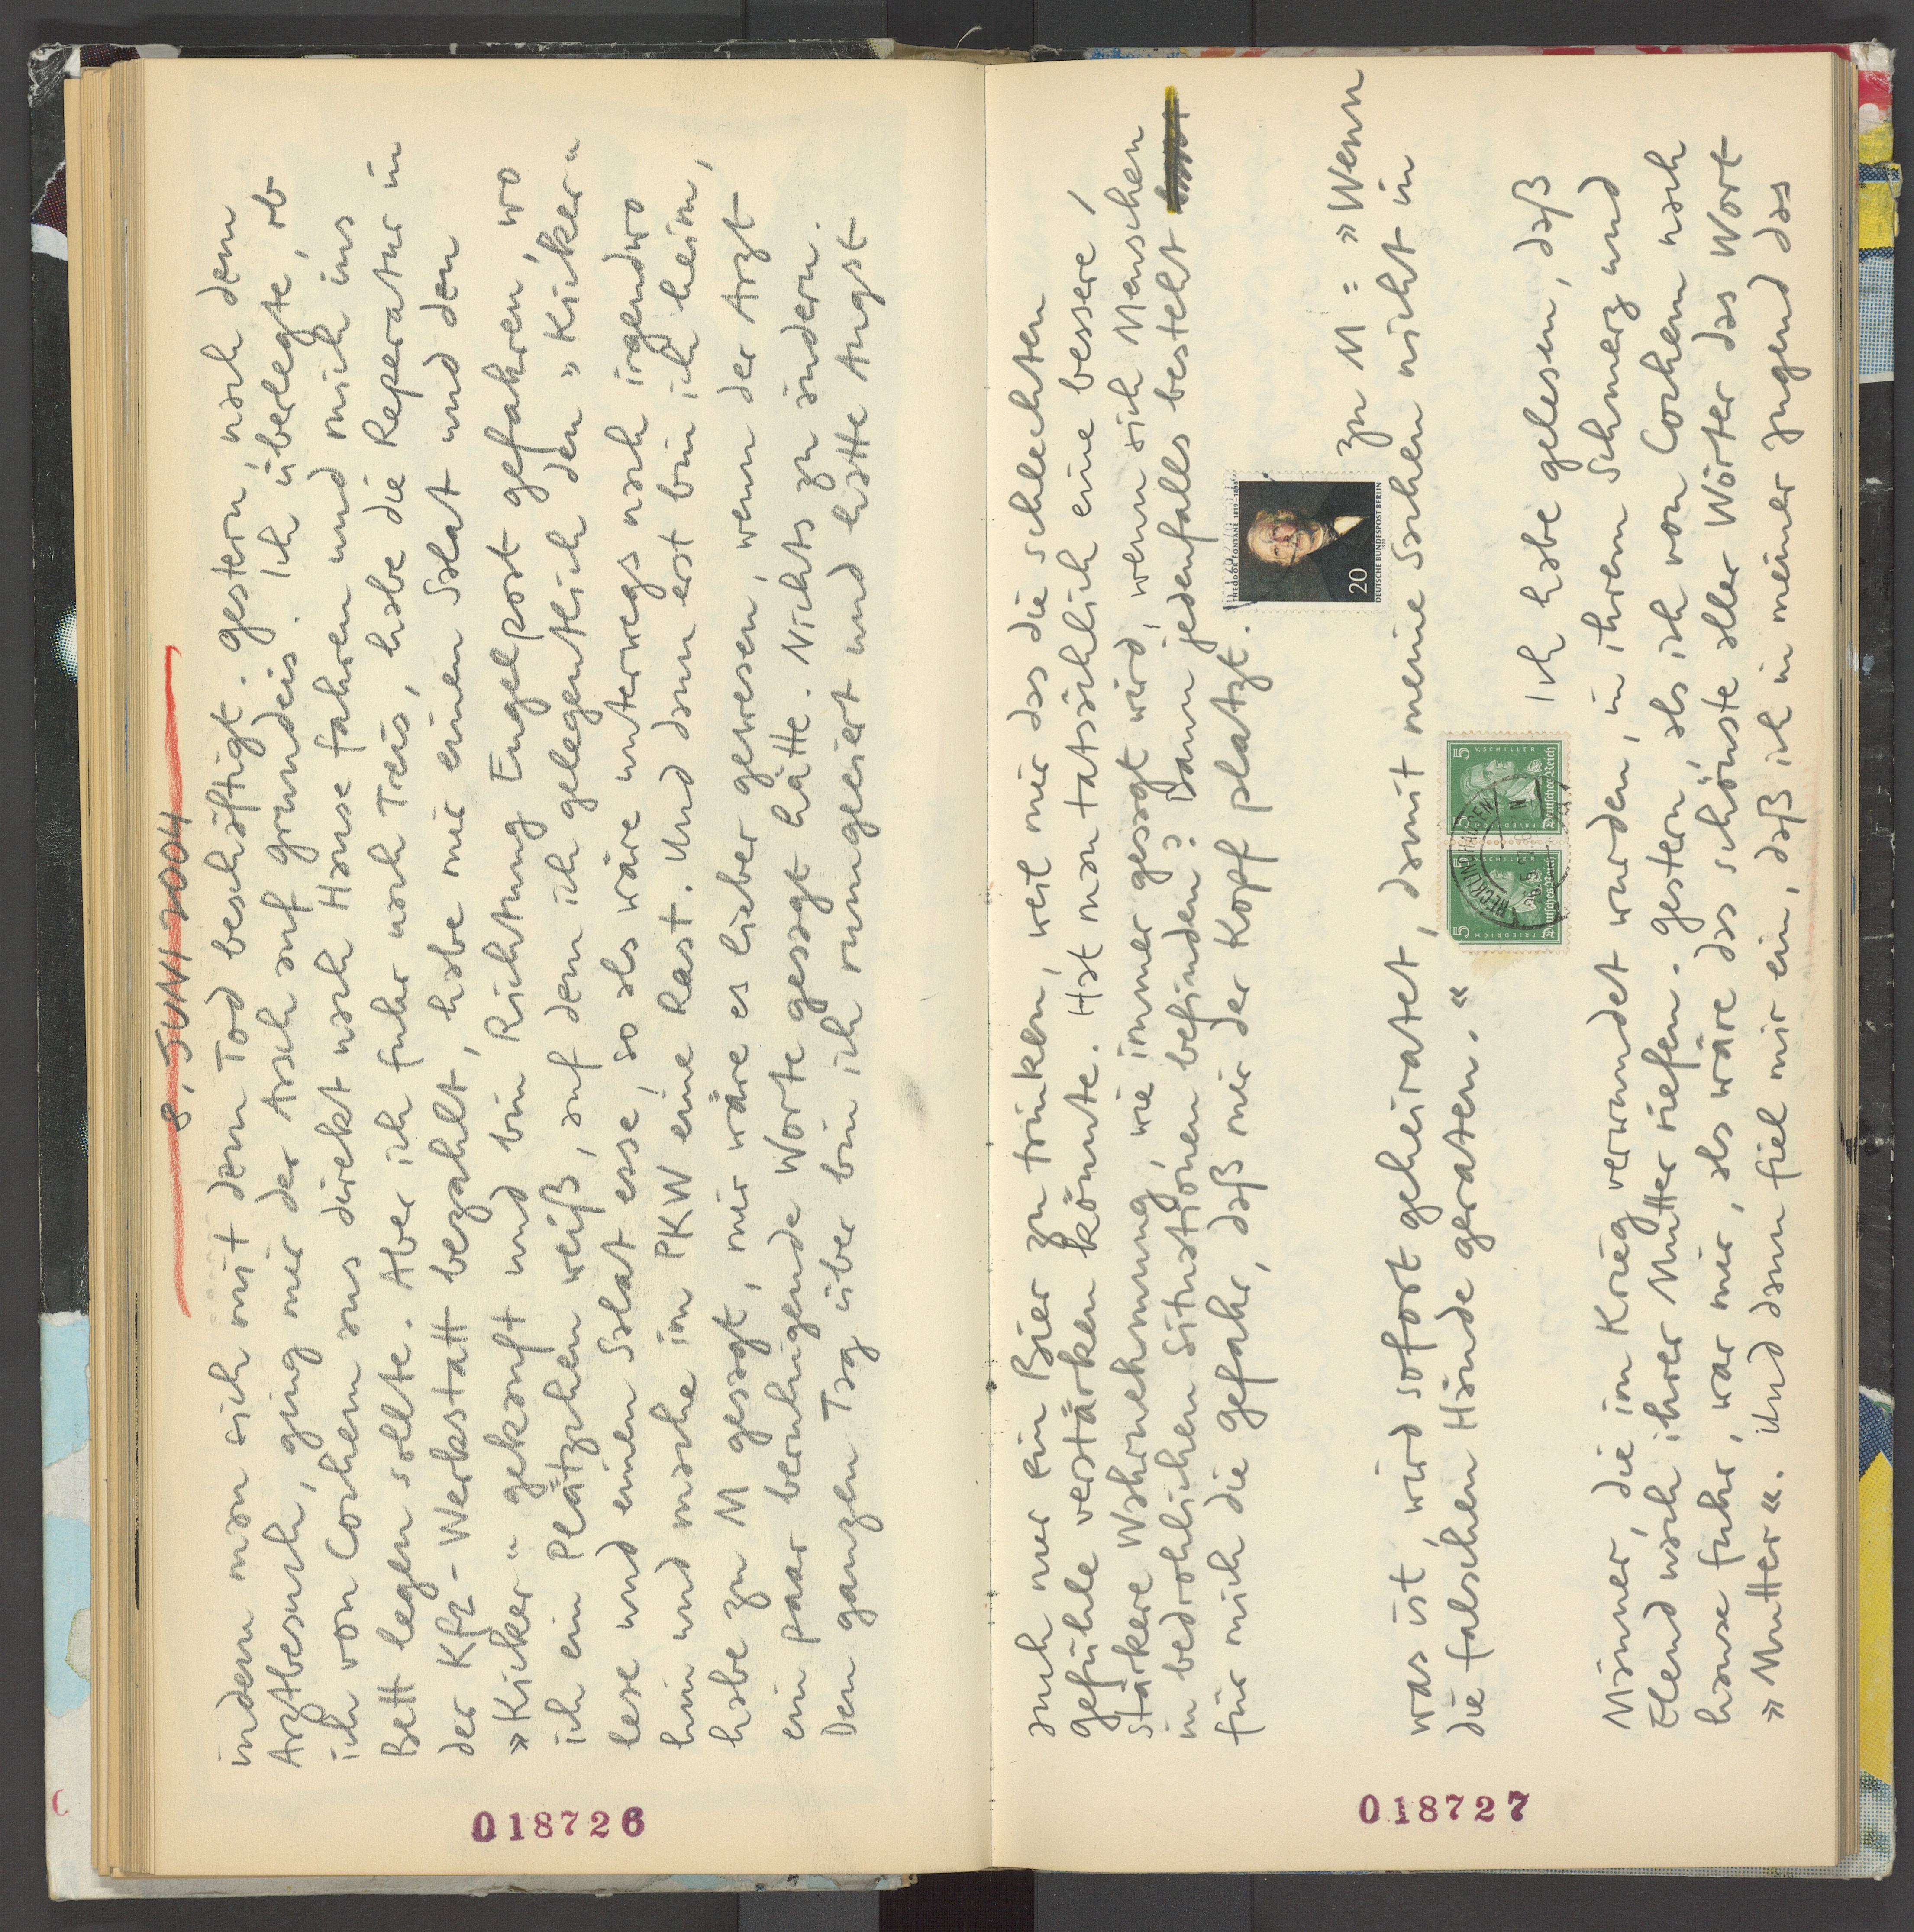 8. JUNI 2004
indem man sich mit dem Tod beschäftigt. Gestern, nach dem
Arztbesuch, ging mir der Arsch auf Grundeis. Ich überlegte, ob
ich von Cochem aus direkt nach Hause fahren und mich ins
Bett legen sollte. Aber ich fuhr nach Treis, habe die Reperatur in
der Kfz-Werkstatt bezahlt, habe mir einen Salat und den
»Kicker« gekauft und bin Richtung Engelport gefahren, wo
ich ein Plätzchen weiß, auf dem ich gelegentlich den »Kicker«
lese und einen Salat esse, so als wäre unterwegs nach irgendwo
hin und mache im PKW eine Rast. Und dann erst bin ich heim,
habe zu M gesagt, mir wäre es lieber gewesen, wenn der Arzt
ein paar beruhigende Worte gesagt hätte. Nichts zu ändern.
Den ganzen Tag über bin ich rumgeiert und hatte Angst
018726
auch nur ein Bier zu trinken, weil mir das die schlechten
Gefühle verstärken könnte. Hat man tatsächlich eine bessere,
stärkere Wahrnehmung, wie immer gesagt wird, wenn sich Menschen
in bedrohlichen Situationen befinden? Dann jedenfalls besteht
für mich die Gefahr, daß mir der Kopf platzt.
THEODOR FONTANE
20
DEUTSCHE BUNDESPOST BERLIN
Zu M: »Wenn
was ist, wird sofort geheiratet, damit meine Sachen nicht in
die falschen Hände geraten.«
5 V. SCHILLER 5
FRIEDRICH
Deutsches Reich
Deutsches Reich
RECKLINGHAUSEN
Ich habe gelesen, daß
Männer, die im Krieg verwundet wurden, in ihrem Schmerz und
Elend nach ihrer Mutter riefen. Gestern, als ich von Cochem nach
hause fuhr, war mir, als wäre das schönste aller Wörter das Wort
»Mutter«. Und dann fiel mir ein, daß ich in meiner Jugend das
018727